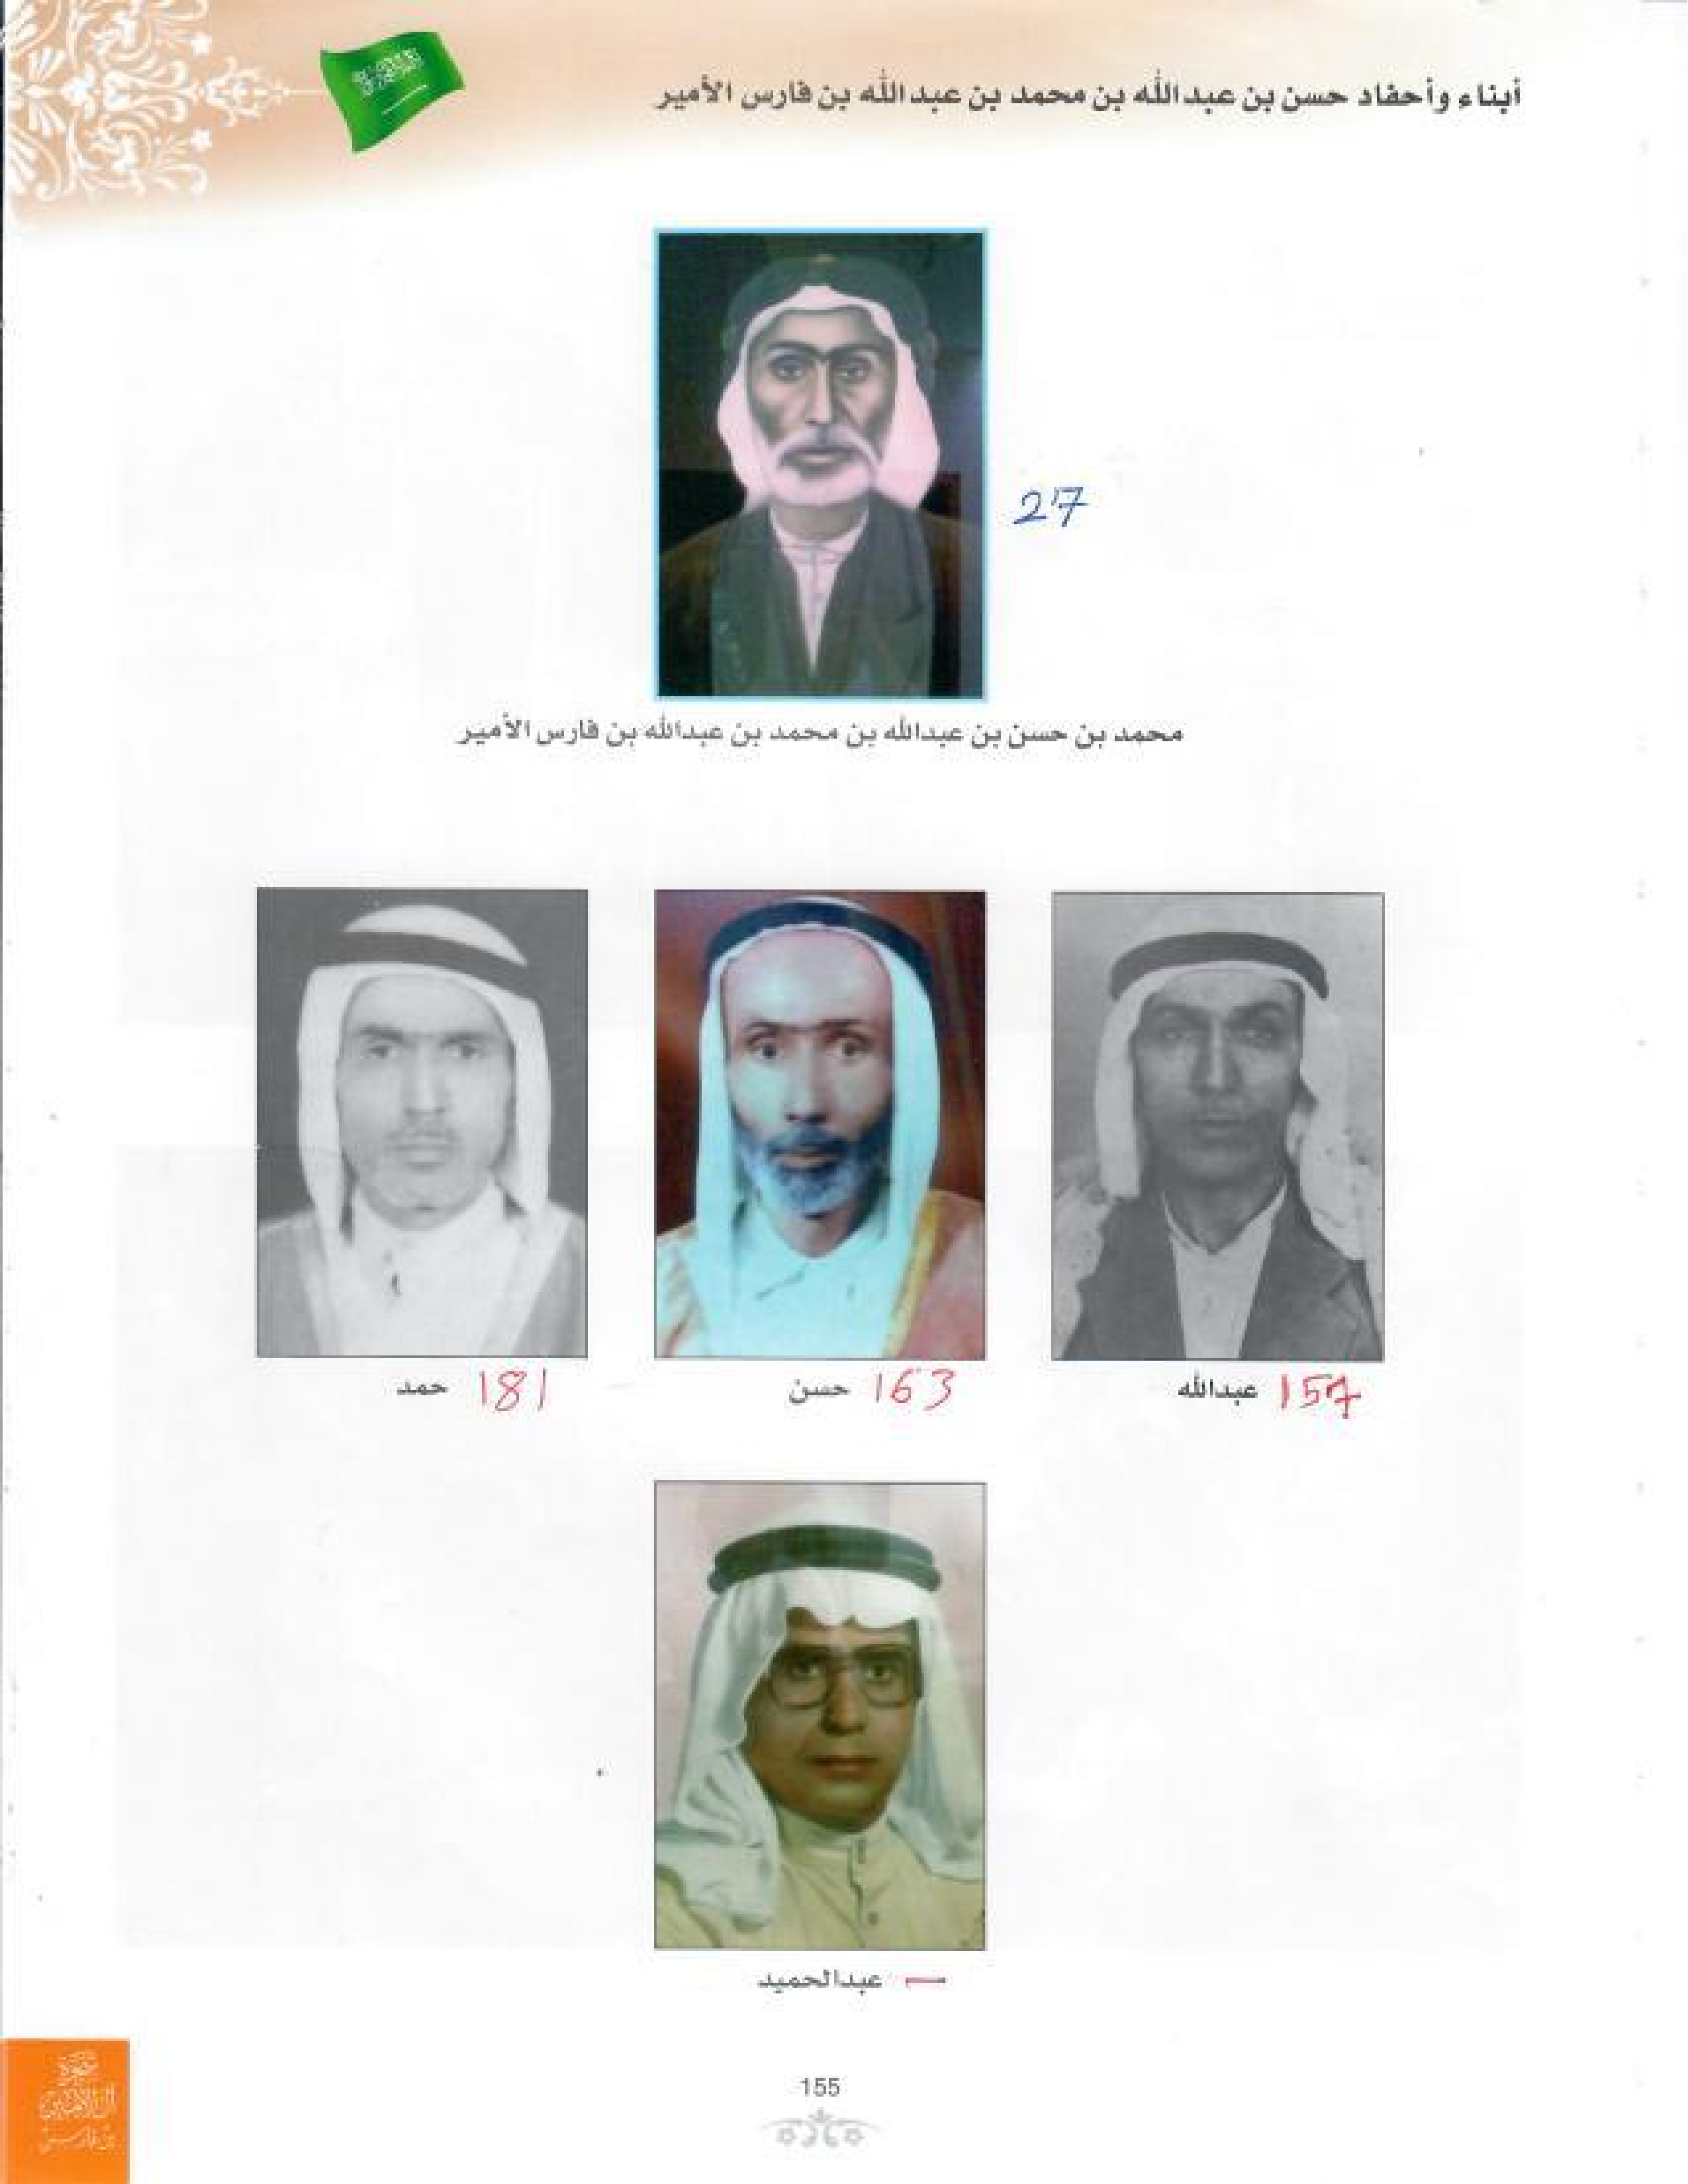 أبناء وأحفاد حسن بن عبدالله بن محمد بن عبدالله بن فارس الأمير
27
محمد بن حسن بن عبدالله بن محمد بن عبدالله بن فارس الأمير
157 عبدالله
163 حسن
181 حمد
عبدالحميد
155
شجرة
آل الأمير
بن فارس